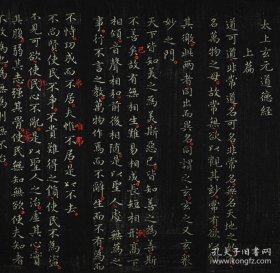 太上玄元道德經
上篇
道可道非常道名可名非常名無名天地之始有
名萬物之母故常無欲以觀其妙常有欲以觀
其徼此兩者同出而異名同謂之玄玄之又玄衆
妙之門
天下皆知美之為美斯惡已皆知善之為善斯
不善矣故有無相生難易相成長短相形高下
相傾音聲相和前後相隨是以聖人處無為之
事行不言之教萬物作焉而不辭生而不有為而
不恃功成而不居夫惟不居是以不去
不尚賢使民不爭不貴難得之貨使民不為盜
不見可欲使心不亂是以聖人之治虛其心實
其腹弱其志強其骨常使民無知無欲使夫知者
不敢為也為無為則無不治